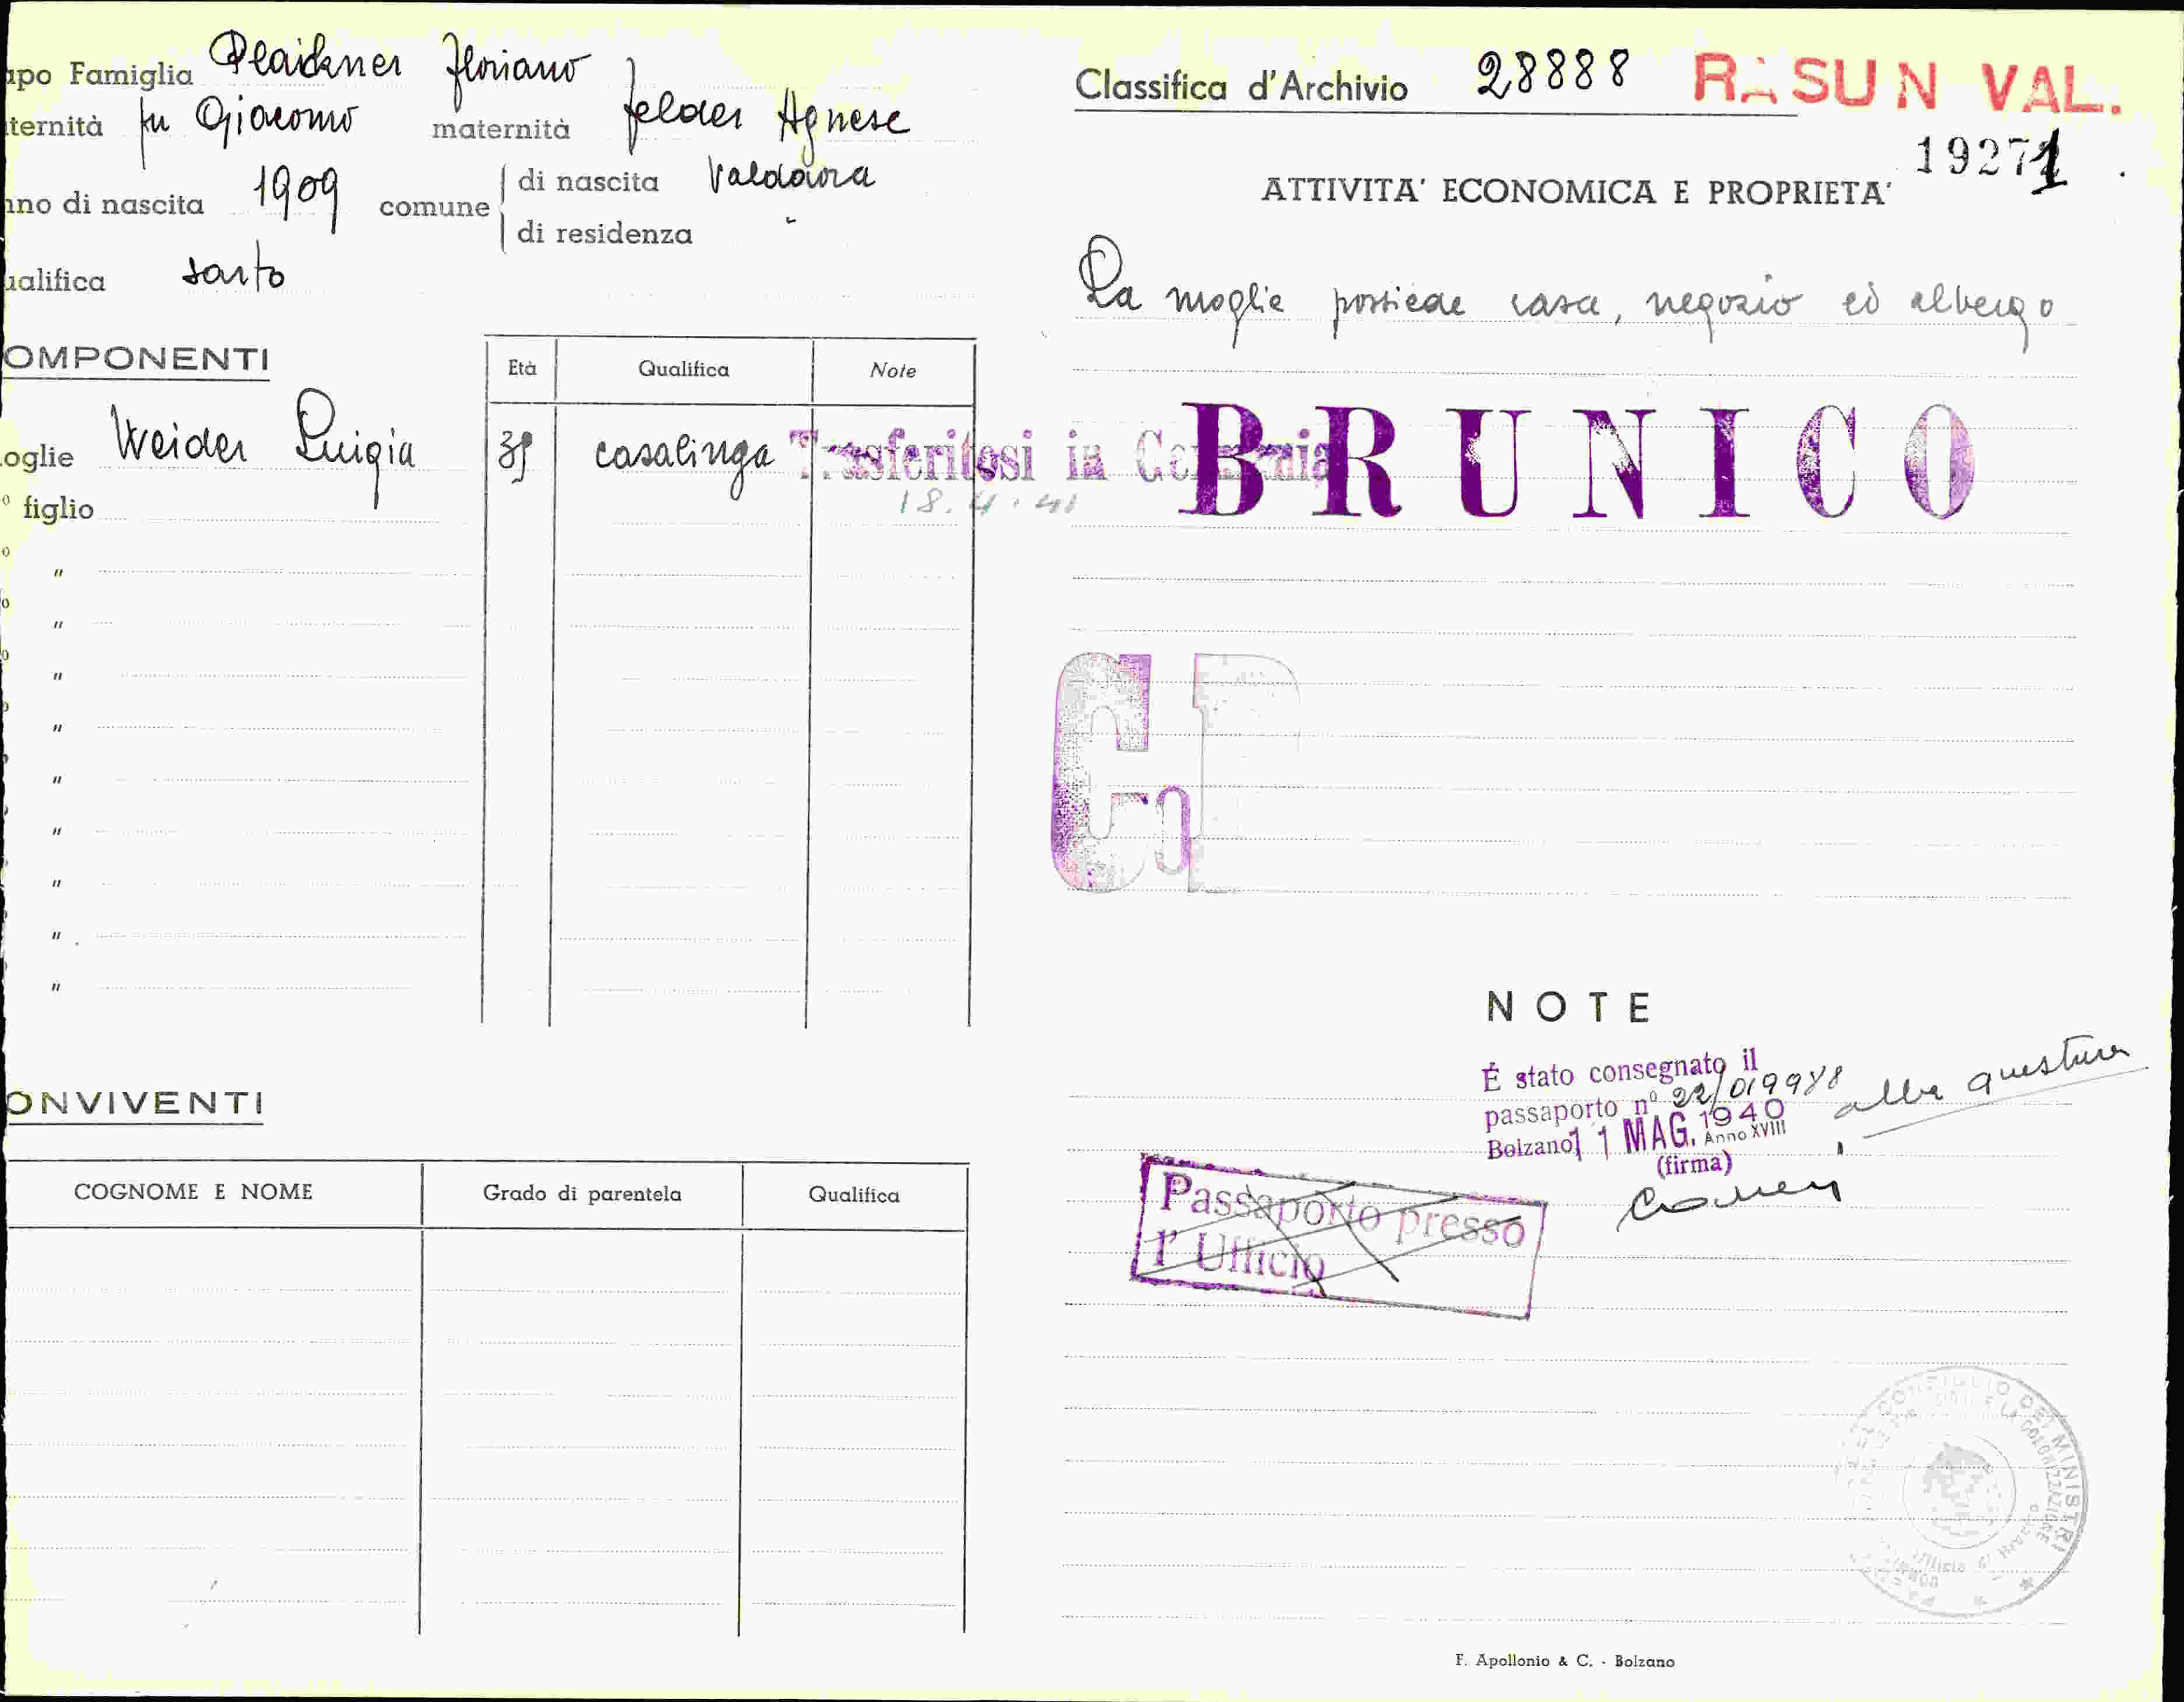 apo Famiglia Plaickner Floriano
ternità fu Giacomo maternità Felder Agnese
nno di nascita 1909 comune di nascita Valdaora
di residenza "
ualifica sarto
OMPONENTI
Età Qualifica Note
oglie Weider Luigia 39 casalinga Trasferitosi in Germania
18.4.41
° figlio
"
"
"
"
"
"
"
"
"
ONVIVENTI
COGNOME E NOME Grado di parentela Qualifica
Classifica d'Archivio 28888 RASUN VAL.
19271
ATTIVITA' ECONOMICA E PROPRIETA'
La moglie possiede casa, negozio ed albergo
BRUNICO
NOTE
É stato consegnato il
passaporto n° 22/019988 alla questura
Bolzano, 11 MAG. 1940 Anno XVIII
(firma)
Passaporto presso
l'Ufficio
CONSIGLIO DEI MINISTRI
E LA COLONIZZAZIONE
F. Apollonio & C. - Bolzano